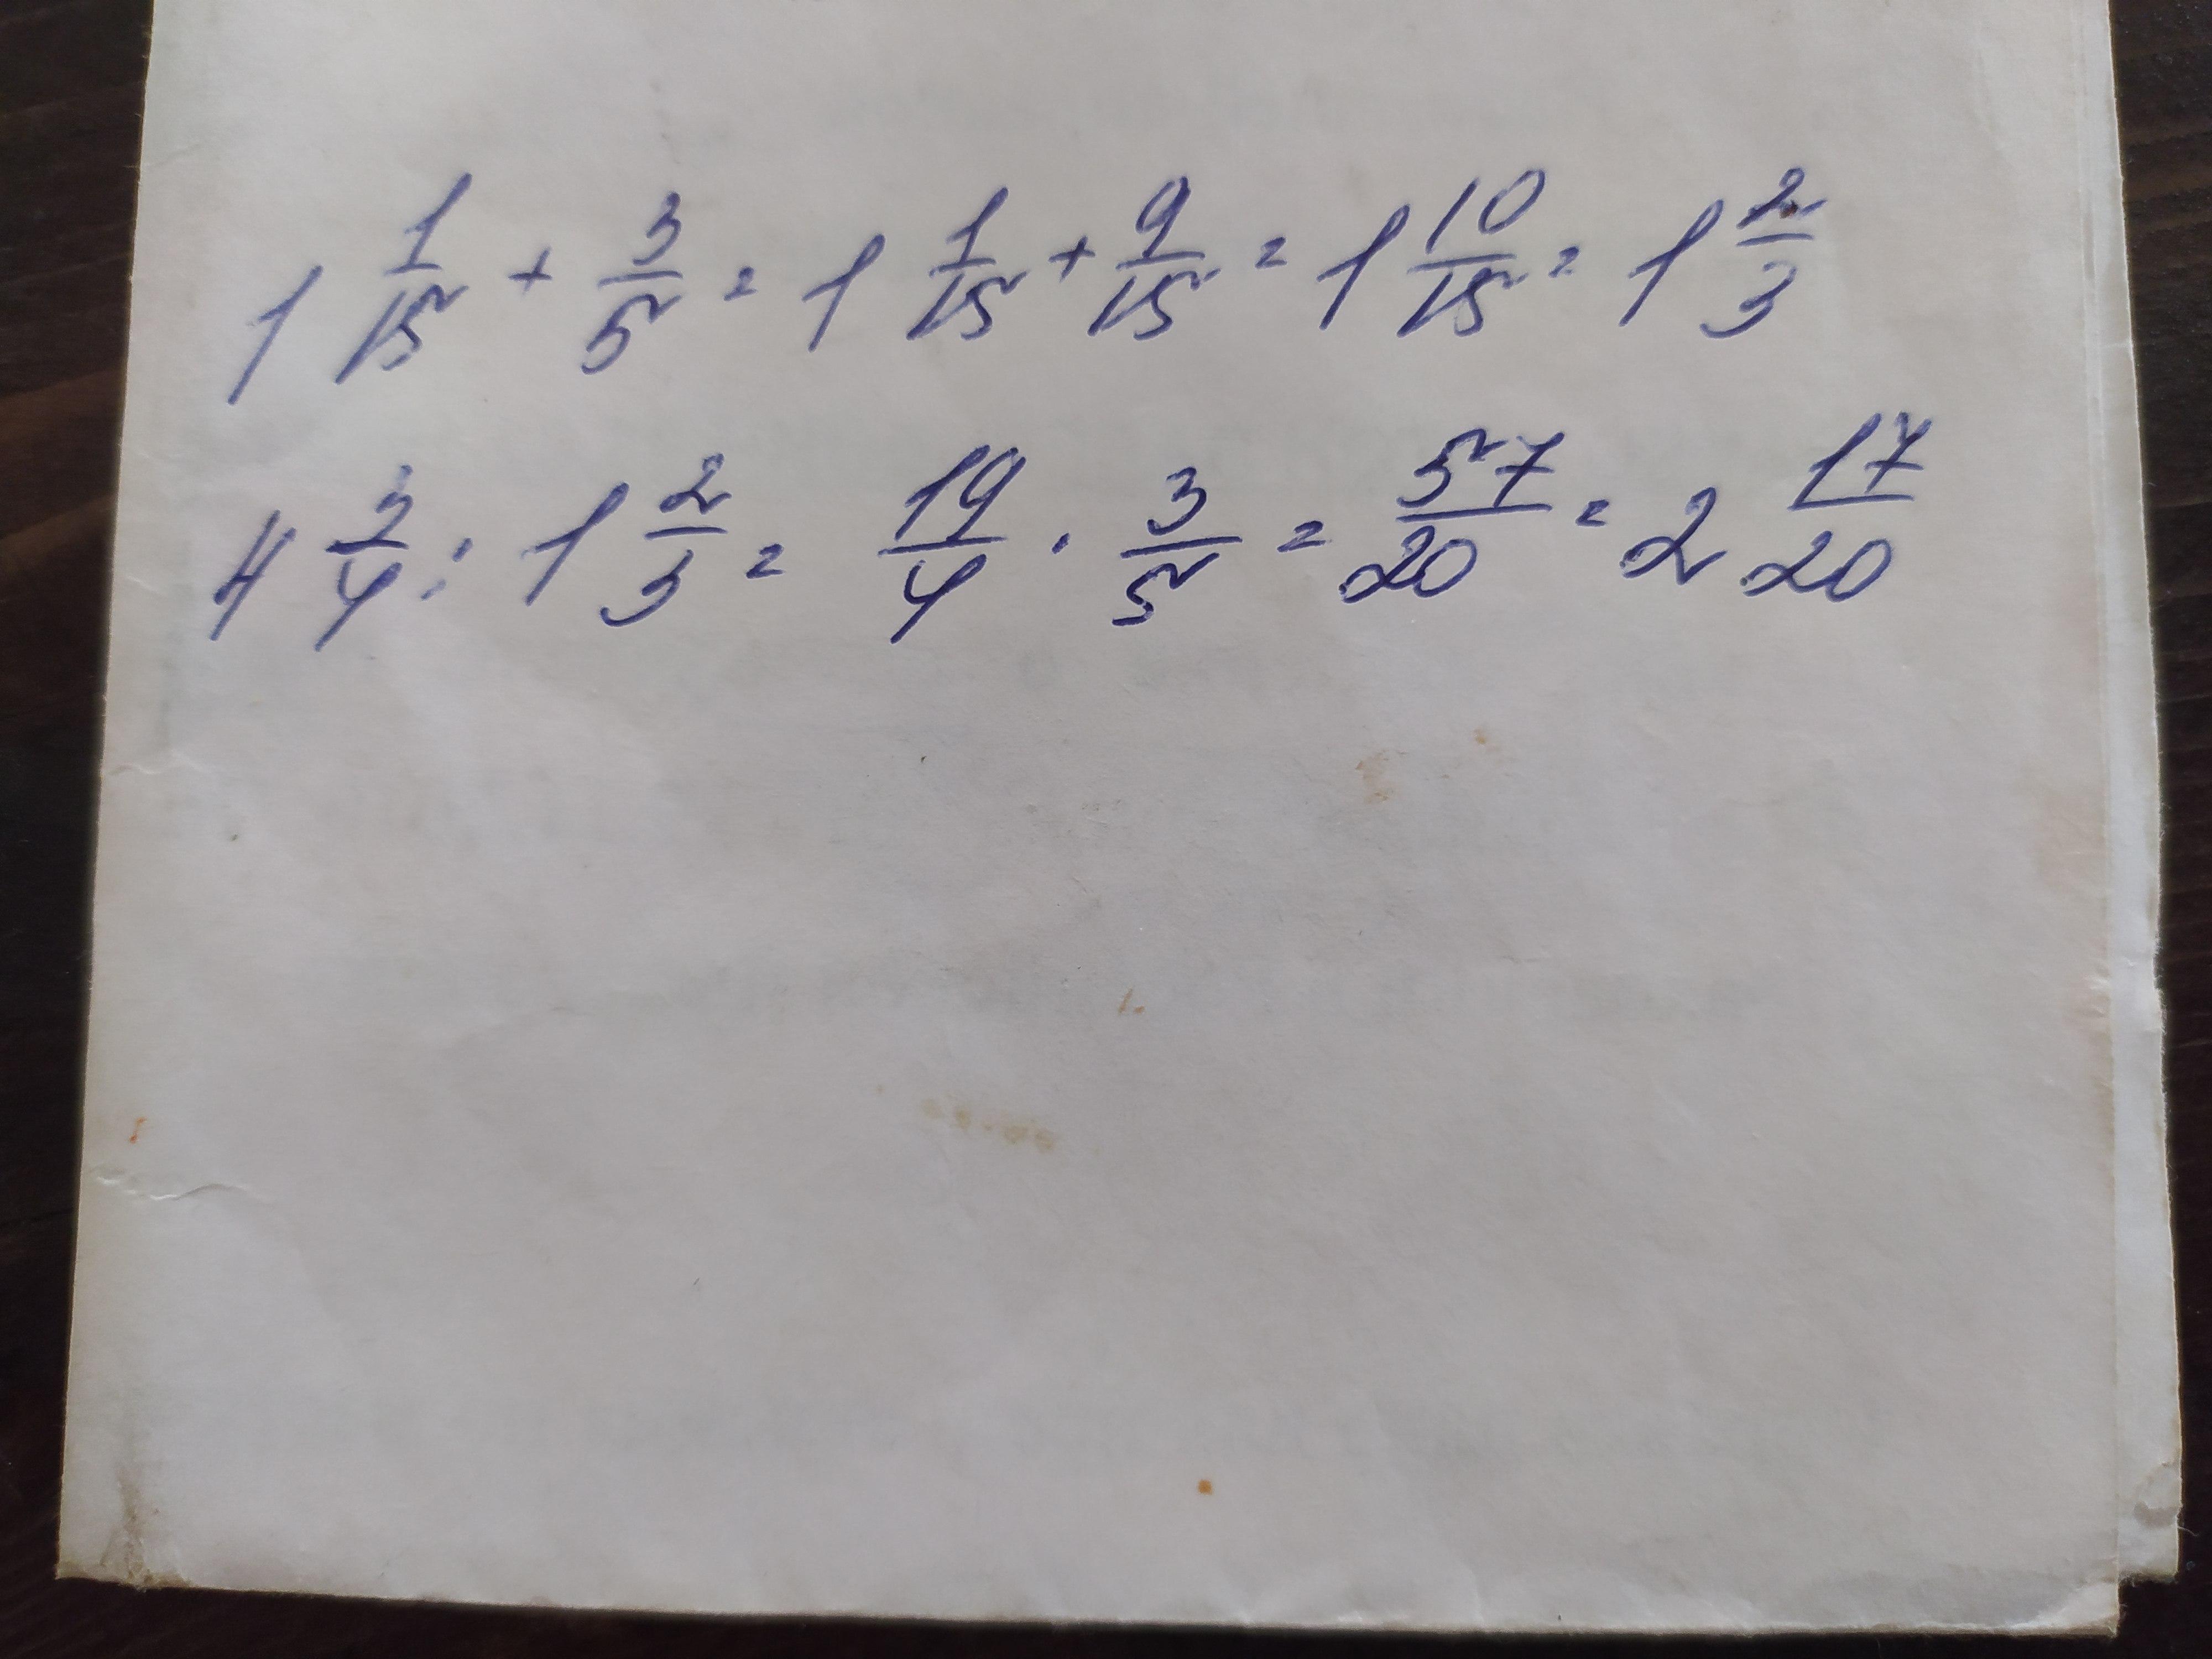 1 1/15 + 3/5 = 1 1/15 + 9/15 = 1 10/15 = 1 2/3
4 3/4 : 1 2/3 = 19/4 · 3/5 = 57/20 = 2 17/20